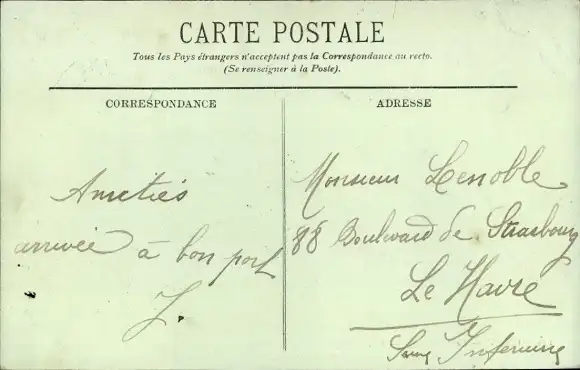 CARTE POSTALE
Tous les Pays étrangers n'acceptent pas la Correspondance au recto.
(Se renseigner à la Poste).
CORRESPONDANCE
Amitiés
arrivée à bon port
J.
ADRESSE
Monsieur Lenoble
88 Boulevard de Strasbourg
Le Havre
Inférieure